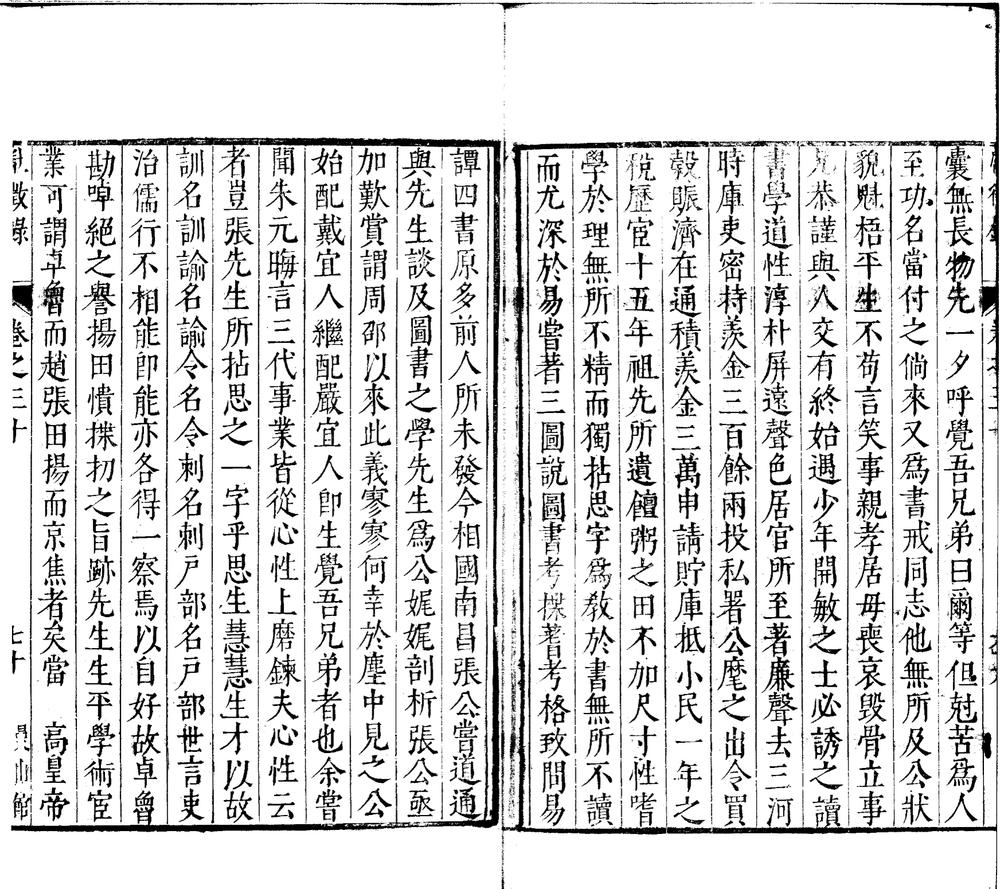 囊無長物先一夕呼覺吾兄弟曰爾等但尅苦爲人
至功名當付之倘來又爲書戒同志他無所及公狀
貌魁梧平生不苟言笑事親孝居毋喪哀毀骨立事
兄恭謹與人交有終始遇少年開敏之士必誘之讀
書學道性淳朴屏遠聲色居官所至著廉聲去三河
時庫吏密持羨金三百餘兩投私署公麾之出令買
穀賑濟在通積羨金三萬申請貯庫抵小民一年之
稅歷宦十五年祖先所遺饘粥之田不加尺寸性嗜
學於理無所不精而獨拈思字爲敎於書無所不讀
而尤深於易嘗著三圖說圖書考揲蓍考格致問易
譚四書原多前人所未發今相國南昌張公嘗道通
與先生談及圖書之學先生爲公娓娓剖析張公亟
加歎賞謂周邵以來此義寥寥何幸於塵中見之公
始配戴宜人繼配嚴宜人卽生覺吾兄弟者也余嘗
聞朱元晦言三代事業皆從心性上磨鍊夫心性云
者豈張先生所拈思之一字乎思生慧慧生才以故
訓名訓諭名諭令名令刺名刺戶部名戶部世言吏
治儒行不相能卽能亦各得一察焉以自好故卓魯
勘啅絕之譽揚田憒揲扐之旨跡先生生平學術宦
業可謂卓魯而趙張田揚而京焦者矣當　高皇帝
徵錄　卷之三十　七十　山館